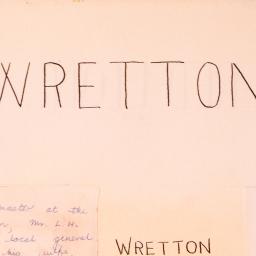 WRETTON
master at the
Mr. L.H.
local general
his wife,
WRETTON